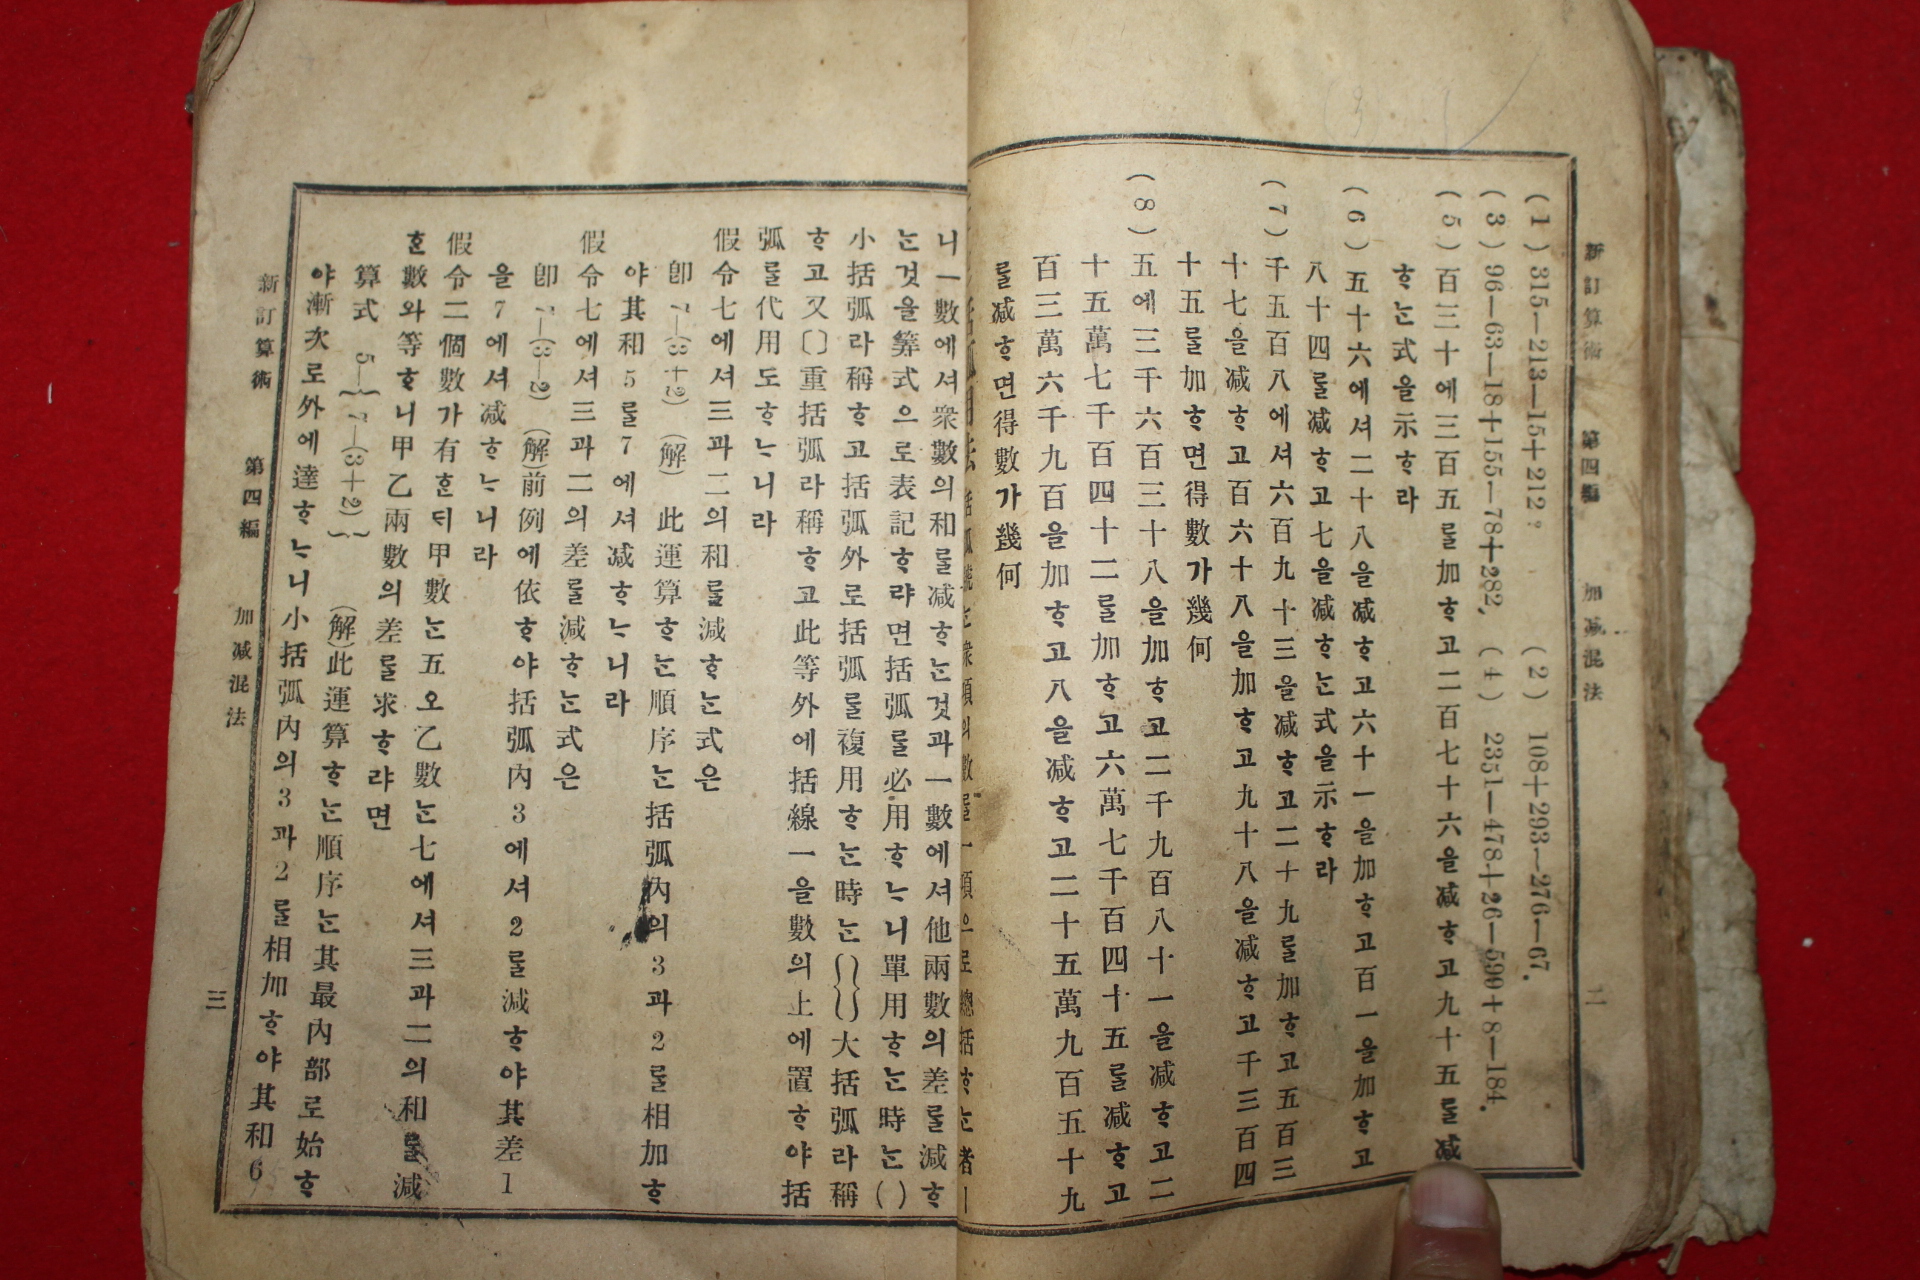 新訂算術 第四編 加減混法 二
(1) 315—213—15+212? (2) 108+293—276—67.
(3) 96—63—18+155—78+282, (4) 2351—478+26—590+8—184.
(5) 百三十에三百五를加ᄒᆞ고二百七十六을減ᄒᆞ고九十五를減
ᄒᆞᄂᆞᆫ式을示ᄒᆞ라
(6) 五十六에셔二十八을減ᄒᆞ고六十一을加ᄒᆞ고百一을加ᄒᆞ고
八十四를減ᄒᆞ고七을減ᄒᆞᄂᆞᆫ式을示ᄒᆞ라
(7) 千五百八에셔六百九十三을減ᄒᆞ고二十九를加ᄒᆞ고五百三
十七을減ᄒᆞ고百六十八을加ᄒᆞ고九十八을減ᄒᆞ고千三百四
十五를加ᄒᆞ면得數가幾何
(8) 五에三千六百三十八을加ᄒᆞ고二千九百八十一을減ᄒᆞ고二
十五萬七千百四十二를加ᄒᆞ고六萬七千百四十五를減ᄒᆞ고
百三萬六千九百을加ᄒᆞ고八을減ᄒᆞ고二十五萬九百五十九
를減ᄒᆞ면得數가幾何
衆項의數를一項으로總括ᄒᆞᄂᆞᆫ者ㅣ
니一數에셔衆數의和를減ᄒᆞᄂᆞᆫ것과一數에셔他兩數의差를減ᄒᆞ
ᄂᆞᆫ것을筭式으로表記ᄒᆞ랴면括弧를必用ᄒᆞᄂᆞ니單用ᄒᆞᄂᆞᆫ時ᄂᆞᆫ( )
小括弧라稱ᄒᆞ고括弧外로括弧를複用ᄒᆞᄂᆞᆫ時ᄂᆞᆫ{ }大括弧라稱
ᄒᆞ고又〔 〕重括弧라稱ᄒᆞ고此等外에括線一을數의上에置ᄒᆞ야括
弧를代用도ᄒᆞᄂᆞ니라
假令七에셔三과二의和를減ᄒᆞᄂᆞᆫ式은
卽 7—(3+2) (解) 此運算ᄒᆞᄂᆞᆫ順序ᄂᆞᆫ括弧內의3과2를相加ᄒᆞ
야其和5를7에셔減ᄒᆞᄂᆞ니라
假令七에셔三과二의差를減ᄒᆞᄂᆞᆫ式은
卽 7—(3—2) (解)前例에依ᄒᆞ야括弧內3에셔2를減ᄒᆞ야其差1
을7에셔減ᄒᆞᄂᆞ니라
假令二個數가有ᄒᆞᆫᄃᆡ甲數ᄂᆞᆫ五오乙數ᄂᆞᆫ七에셔三과二의和를減
ᄒᆞᆫ數와等ᄒᆞ니甲乙兩數의差를求ᄒᆞ랴면
算式 5—{7—(3+2)} (解)此運算ᄒᆞᄂᆞᆫ順序ᄂᆞᆫ其最內部로始ᄒᆞ
야漸次로外에達ᄒᆞᄂᆞ니小括弧內의3과2를相加ᄒᆞ야其和6
新訂算術 第四編 加減混法 三